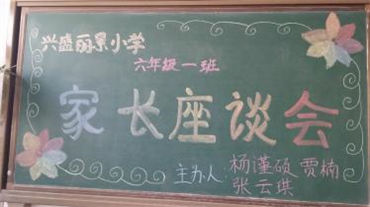 兴盛丽景小学
六年级一班
家长座谈会
主办人 杨谨硕 贾楠
张云琪